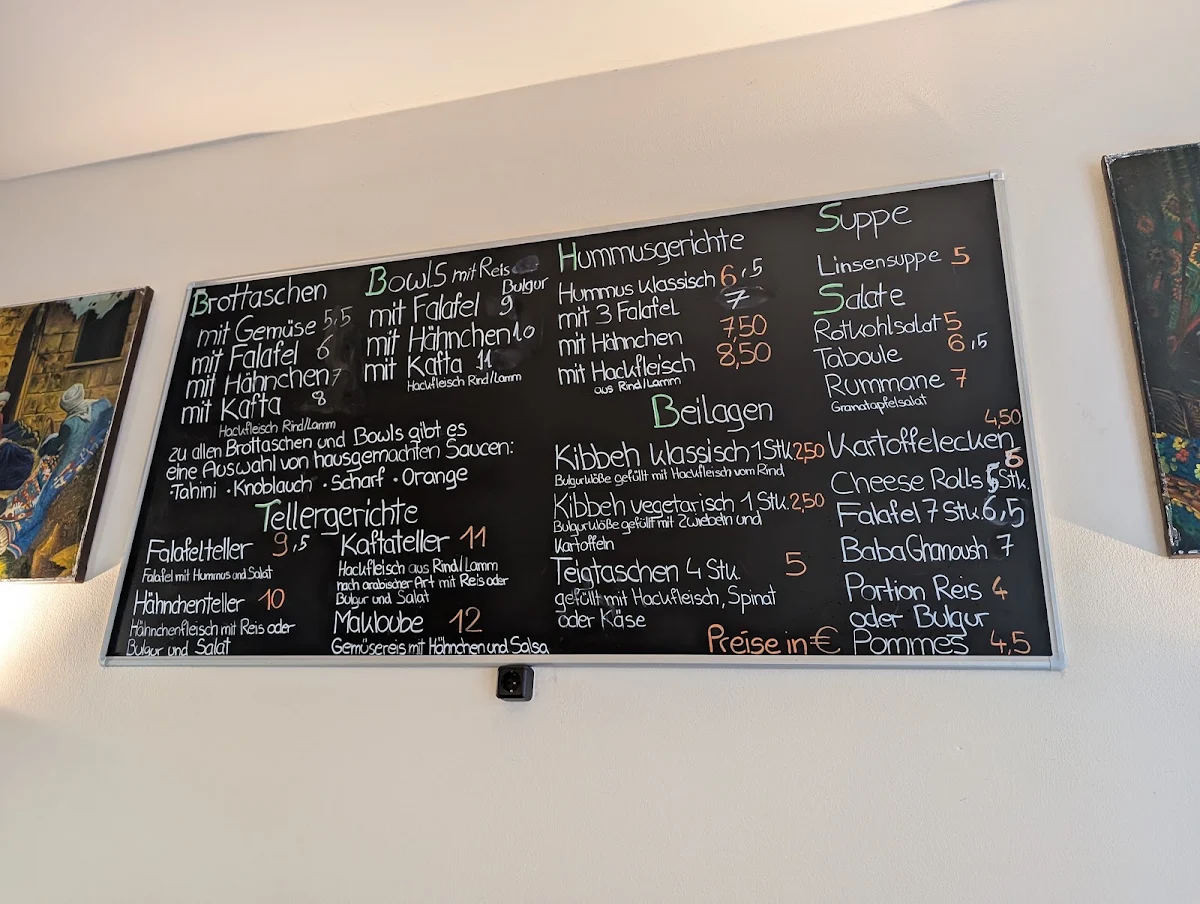 Brottaschen
mit Gemüse 5,5
mit Falafel 6
mit Hähnchen 7
mit Kafta 8
Hackfleisch Rind/Lamm
Bowls mit Reis
Bulgur
mit Falafel 9
mit Hähnchen 10
mit Kafta 11
Hackfleisch Rind/Lamm
zu allen Brottaschen und Bowls gibt es
eine Auswahl von hausgemachten Saucen:
Tahini · Knoblauch · Scharf · Orange
Tellergerichte
Falafelteller 9,5
Falafel mit Hummus und Salat
Hähnchenteller 10
Hähnchenfleisch mit Reis oder
Bulgur und Salat
Kaftateller 11
Hackfleisch aus Rind/Lamm
nach arabischer Art mit Reis oder
Bulgur und Salat
Makloube 12
Gemüsereis mit Hähnchen und Salsa
Hummusgerichte
Hummus klassisch 6,5
mit 3 Falafel 7
mit Hähnchen 7,50
mit Hackfleisch 8,50
aus Rind/Lamm
Beilagen
Kibbeh klassisch 1 Stk. 2,50
Bulgurklöße gefüllt mit Hackfleisch vom Rind
Kibbeh vegetarisch 1 Stk. 2,50
Bulgurklöße gefüllt mit Zwiebeln und
Kartoffeln
Teigtaschen 4 Stk. 5
gefüllt mit Hackfleisch, Spinat
oder Käse
Preise in €
Suppe
Linsensuppe 5
Salate
Rotkohlsalat 5
Taboule 6,5
Rummane 7
Granatapfelsalat
Kartoffelecken 4,50
Cheese Rolls 5 Stk.
Falafel 7 Stk. 6,5
Baba Ghanoush 7
Portion Reis 4
oder Bulgur
Pommes 4,5